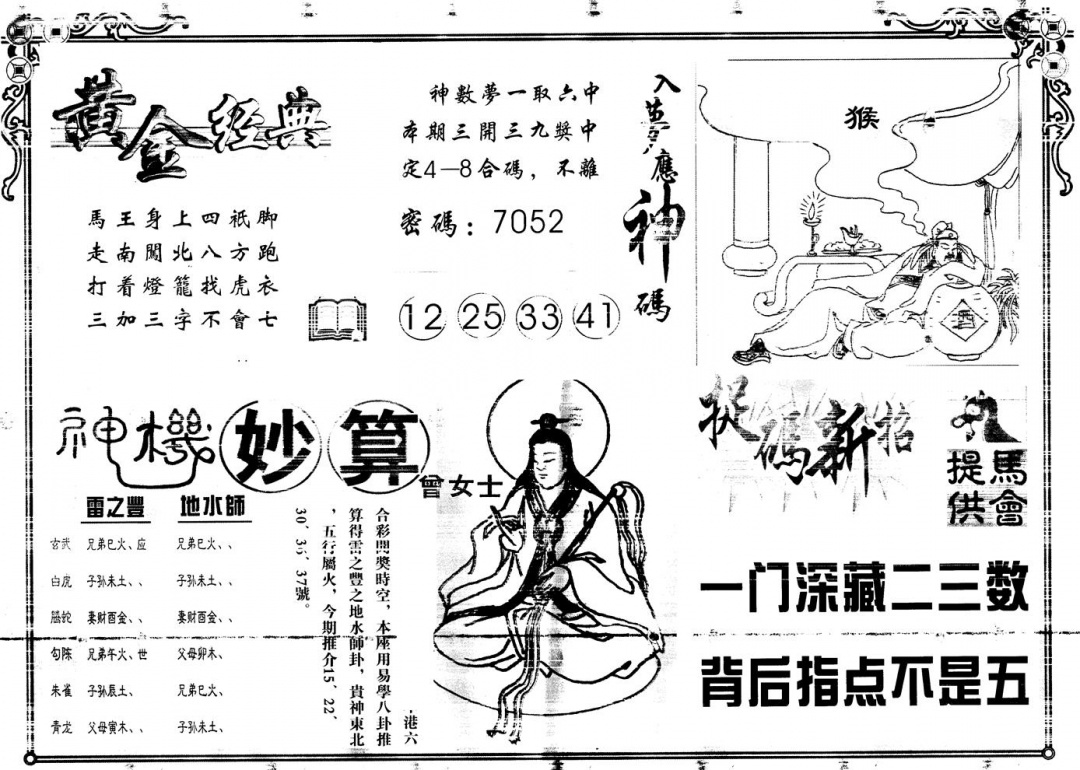 黃金經典
馬王身上四衹脚
走南闖北八方跑
打着燈籠找虎衣
三加三字不會七
神數夢一取六中
本期三開三九獎中
定4—8合碼，不離
密碼：7052
12 25 33 41
入夢應神碼
猴
酒
神機妙算
曾女士
雷之豐 地水師
玄武 兄弟巳火、应 兄弟巳火、、
白虎 子孙未土、、 子孙未土、、
螣蛇 妻财酉金、、 妻财酉金、、
句陈 兄弟午火、世 父母卯木、
朱雀 子孙辰土、 兄弟巳火、
青龙 父母寅木、、 子孙未土、
．港六
合彩開獎時空，本座用易學八卦推
算得雷之豐之地水師卦，貴神東北
，五行屬火，今期推介15、22、
30、36、37號。
捉碼新招
馬會
提供
一门深藏二三数
背后指点不是五